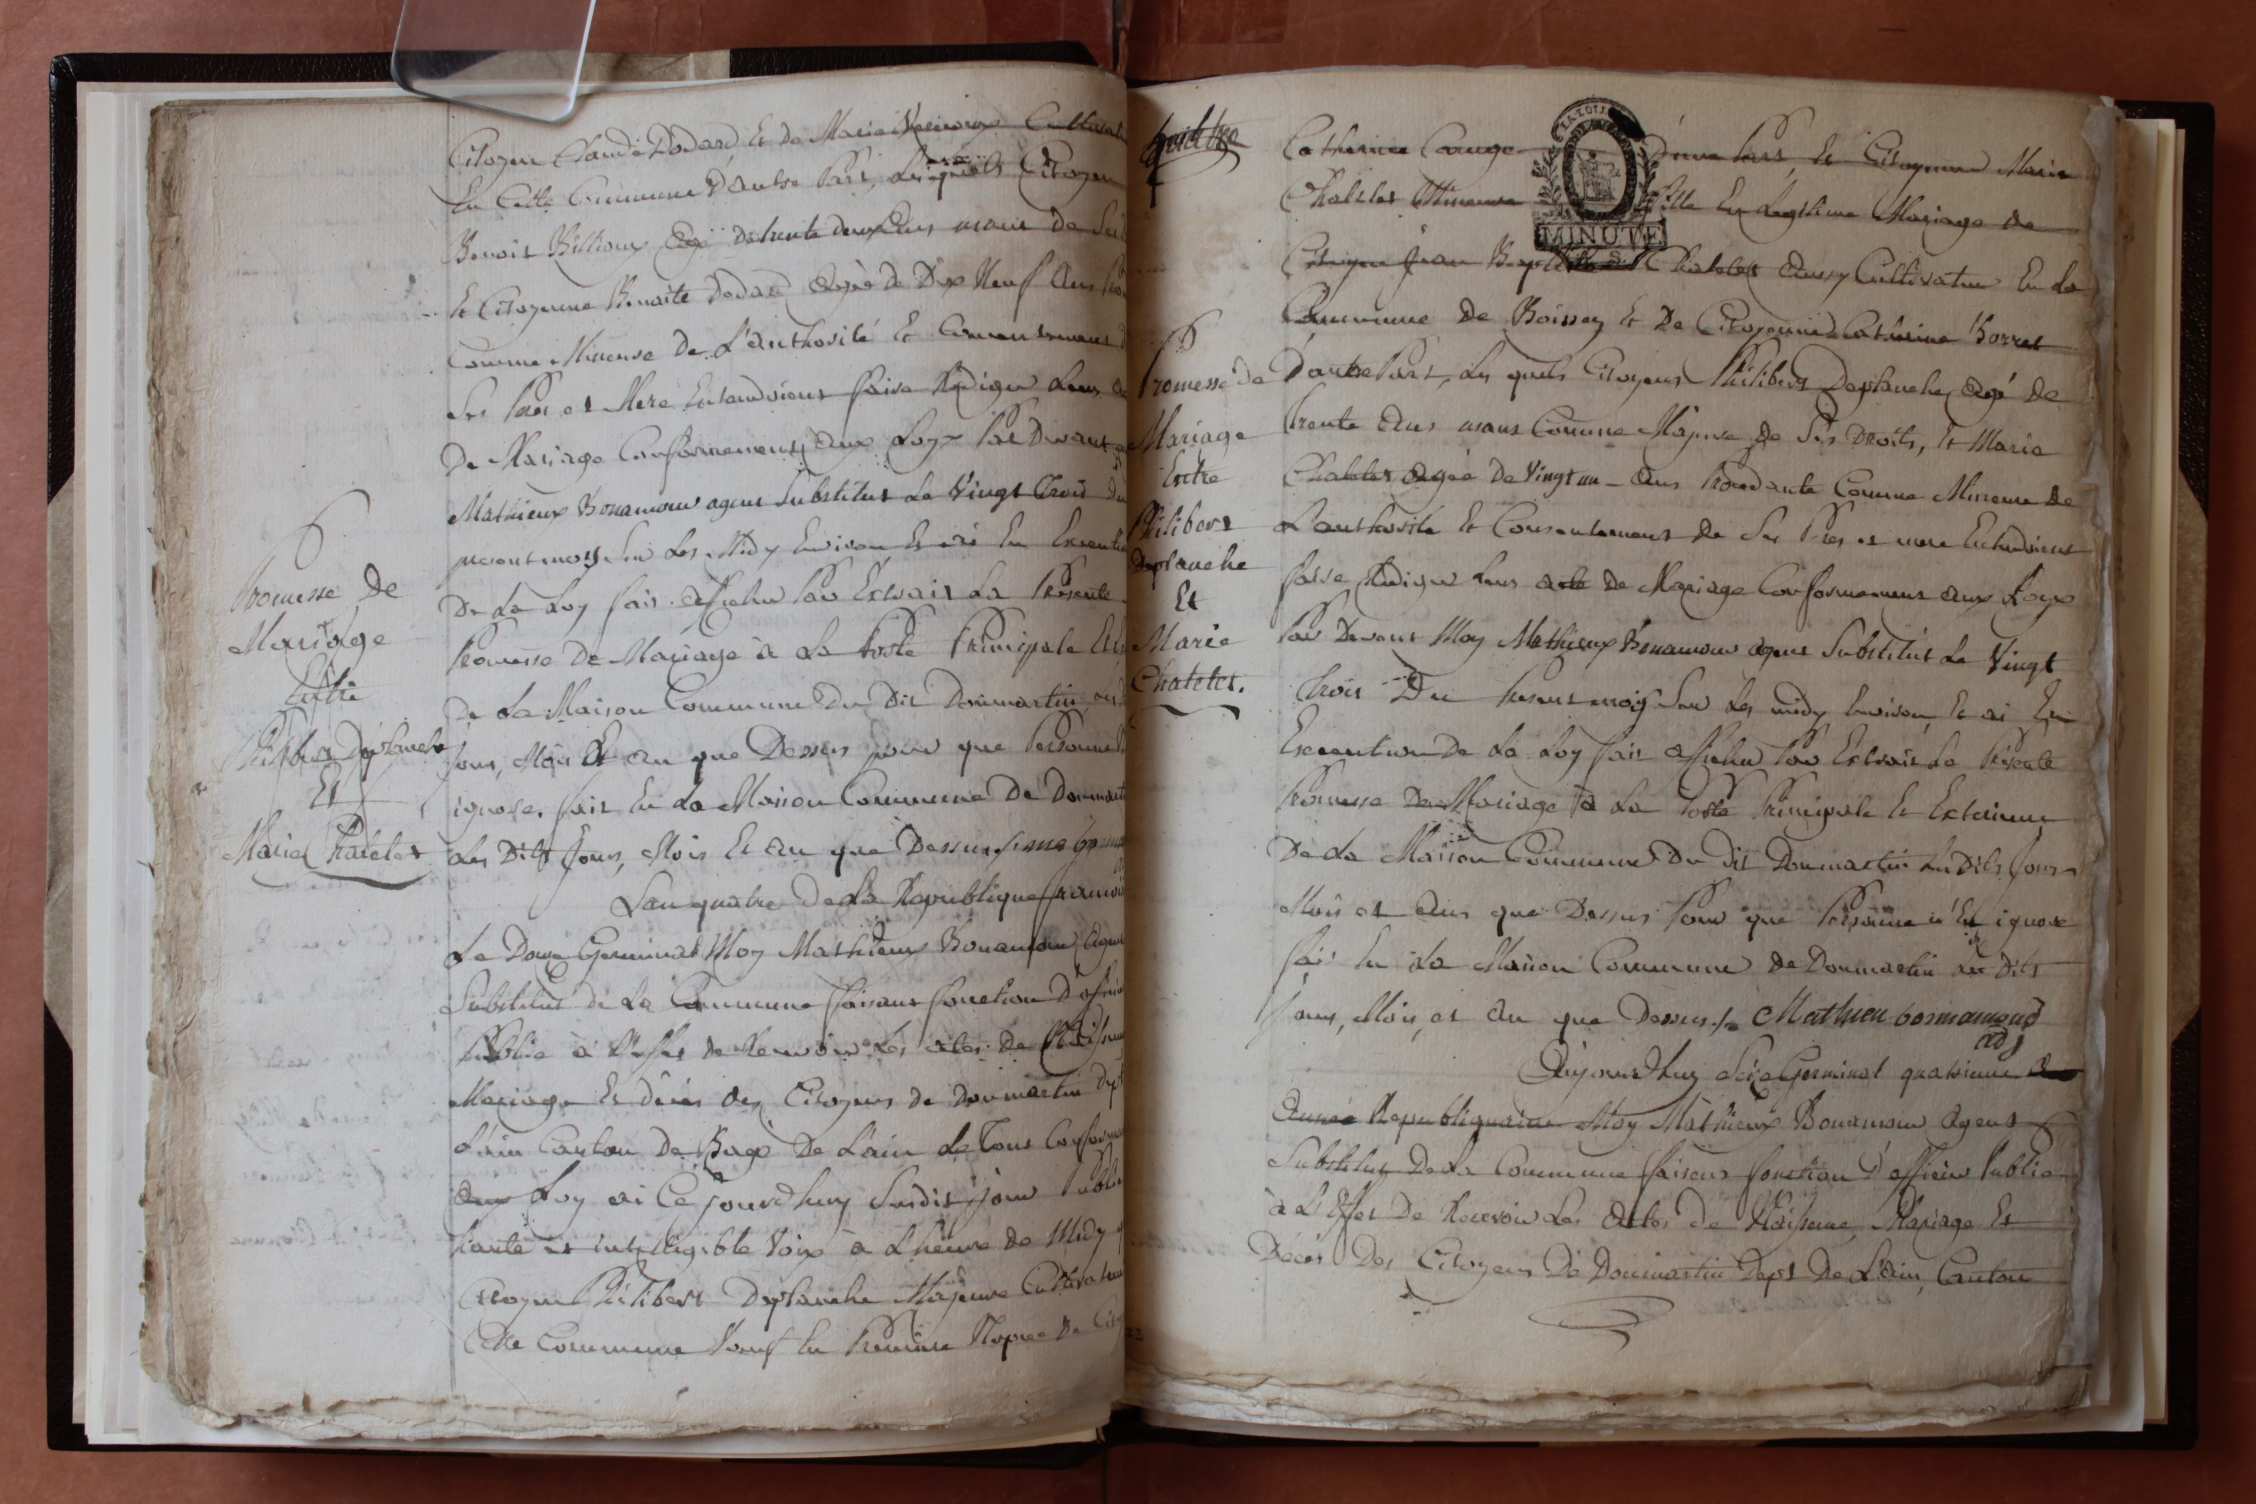 Citoyen Claude Dodard Et de Marie Cultivat
En Cette Commune d'autre Part, Lesquels Citoyen
Benoit Billioux Agé de trente deux Ans usant de Ses
Et Citoyenne Benoite Dodard Agée de Dix Neuf Ans
Comme Mineure De L'authorité Et Consentement
Ses Père et Mere Entendoient faire Rediger Leur
De Mariage Conformement aux Loyx Par Devant
Mathieux Bonamour agent Substitut Le Vingt Trois du
present mois Sur Les Midy Environ Et ai En Executi
De La Loy fait afficher Par Extrait La Présente
Promesse De Mariage à La Porte Principale
De La Maison Commune Du Dit Dommartin
Jour, Mois Et An que Dessus pour que Personne
ignore. fait En La Maison Commune De Dommarti
Les Dits Jour, Mois Et An que Dessus
Promesse De
Mariage
Entre
Philibert Deplanche
Et
Marie Chatelet
L'an quatre De La Republique francoi
Le Douze Germinal Moy Mathieux Bonamour Agent
Substitut de La Commune faisant fonction D'officier
Publie à L'effet de Recevoir Les actes De Naissance
Mariage Et décès des Citoyens de Dommartin Dept
L'ain Canton De Bagé De L'ain Le Tous Conforme
aux Loy ai Ce jourdhuy Susdit jour Publié
haute et intelligible Voix à L'heure De Midy
Citoyen Philibert Deplanche Majeure Cultivateur
Cette Commune Veuf En Premiere Nopce De Cit
Catherine d'une Part, Et Citoyenne Marie
Chatelet Mineure fille En Legitime Mariage de
MINUTE
Citoyen Jean Baptiste Chatelet Aussy Cultivateur En La
Commune De Boissey Et De Citoyenne Catherine Borret
D'autre Part, Les quels Citoyens Philibert Deplanche agé De
trente Ans usant Comme Majeure de Ses Droits, Et Marie
Chatelet agée De Vingt un Ans Procedante Comme Mineure De
L'authorité Et Consentement De Ses Père et mere Entendoient
faire Rediger Leur acte De Mariage Conformement aux Loyx
Par Devant Moy Mathieux Bonamour agent Substitut Le Vingt
Trois Du Present mois Sur Les midy Environ, Et ai En
Execution De La Loy fait afficher Par Extrait La Présente
Promesse De Mariage à La Porte Principale Et Exterieure
De La Maison Commune Du dit Dommartin Les Dits Jour
Mois et Ans que Dessus Pour que Personne n'En ignore
fait En La Maison Commune De Dommartin Les Dits
Jour, Mois, et An que Dessus Mathieu bonnamour
adj
Promesse de
Mariage
Entre
Philibert
Deplanche
Et
Marie
Chatelet.
Aujourdhuy Seize Germinal quatrieme
Année Republiquaine Moy Mathieux Bonamour Agent
Substitut De La Commune faisant fonction d'officier Publie
à L'Effet De Recevoir Les Actes de Naissance, Mariage Et
Décès Des Citoyens De Dommartin Dept De L'Ain, Canton